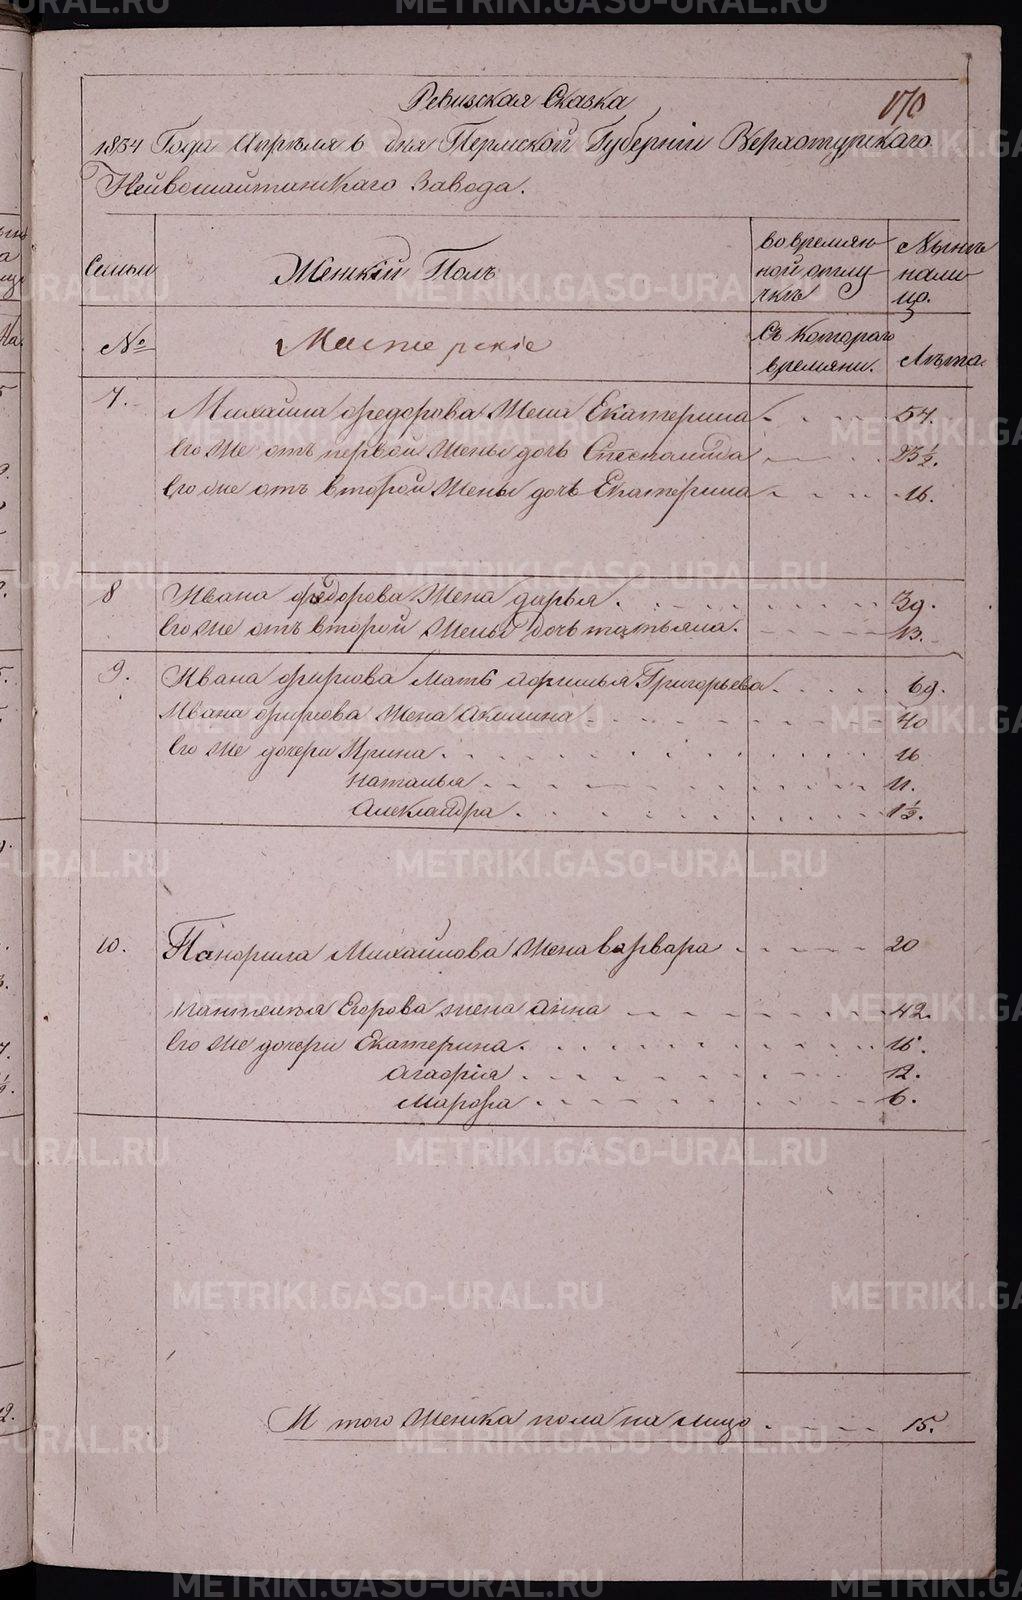 Ревизская Сказка
170
1834 Года Апреля 6 дня Пермской Губерніи Верхотурскаго
Нейвошайтанскаго Завода.
Семьи
Женскій Полъ
во времян
ной отлу
чкѣ
Нынѣ
нали
цо.
№
Мастерскіе
Съ котораго
времяни.
Лѣта.
7.
Михаила федорова Жена Екатерина 54.
Его же отъ первой Жены дочь 23½.
Его же отъ второй Жены дочь Екатерина 16.
8
Ивана федорова Жена дарья. 39.
Его же отъ второй Жены дочь татьяна. 13.
9.
Ивана фирсова Мать Афимья Григорьева. 69.
Ивана фирсова Жена Акилина 40
Его же дочери Ирина. 16
Наталья 11.
Александра. 1½.
10.
Панфила Михайлова Жена варвара 20
пантелея Егорова жена анна 42.
Его же дочери Екатерина. 15.
Агафія 12.
Марфа 6.
И того женска пола на лицо 15.
METRIKI.GASO-URAL.RU